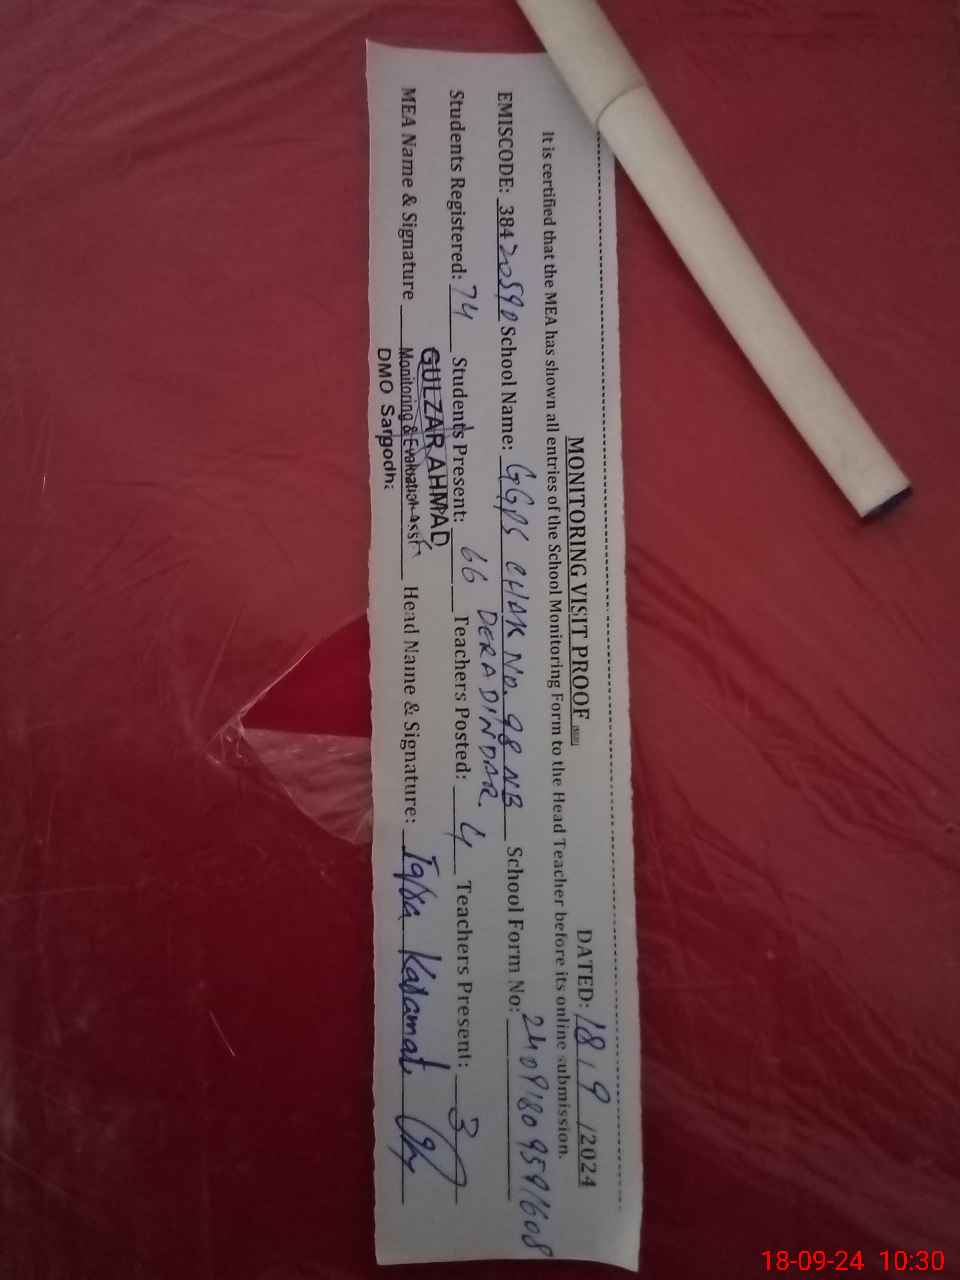 MONITORING VISIT PROOF
DATED: 18/9/2024
It is certified that the MEA has shown all entries of the School Monitoring Form to the Head Teacher before its online submission.
EMISCODE: 38420590 School Name: GGPS CHAK No. 98 NB School Form No: 24091809591608
DERA DINDAR.
Students Registered: 74 Students Present: 66 Teachers Posted: 4 Teachers Present: 3
MEA Name & Signature GULZAR AHMAD Head Name & Signature: Iqra Karamat
Monitoring & Evaluation Asstt
DMO Sargodh
18-09-24 10:30